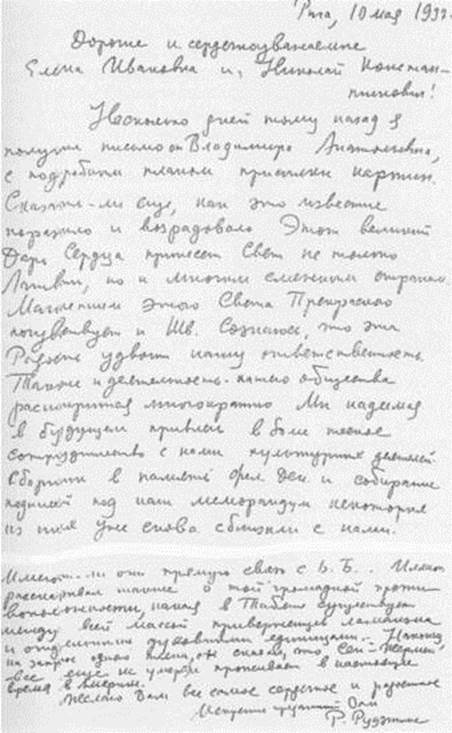 Рига, 10 мая 193
Дорогие и сердечноуважаемые
Елена Ивановна и, Николай Констан-
тинович!
Несколько дней тому назад я
получил письмо от Владимира Анатольевича,
с подробным планом присылки картин.
Сказать-ли еще, как это известие
поразило и возрадовало Этот великий
Дар Сердца принесет Свет не только
Латвии, но и многим смежным странам.
Магнетизм этого Света Прекрасного
почувствует и Шв. Сознаюсь, что эта
Радость удвоит нашу ответственность.
Также и деятельность нашего общества
расширится многократно Мы надеемся
в будущем привлечь в более тесное
сотрудничество с нами культурных деятелей.
Сборник в память фел. Ден. и собирание
подписей под наш меморандум некоторых
из них уже снова сблизили с нами.
Имеют-ли они прямую связь с Б. Б..
рассказывал также о той громадной проти-
воположности, какая в Тибете существует
между всей массой приверженцев ламаизма
и отдельными духовными единицами.. Наконец,
на запрос одного члена, он сказал, что Сен-Жермен
все еще не умер и проживает в настоящее
время в Америке.
Желаю Вам все самое сердечное и радостное
Искренно преданный Вам
Р. Рудзитис